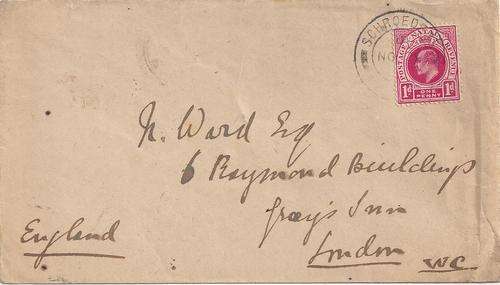 SCHROED
NO
POSTAGE NATAL REVENUE
1d ONE PENNY 1d
N. Ward Esq
6 Raymond Buildings
Grays Inn
London
W.C.
England